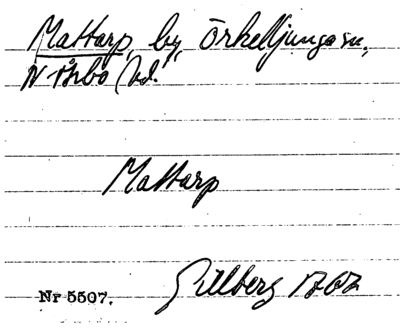 Mattarp, by, Örkelljunga sn,
N Åsbo hd.
Mattarp
Gillberg 1767
Nr 5507.